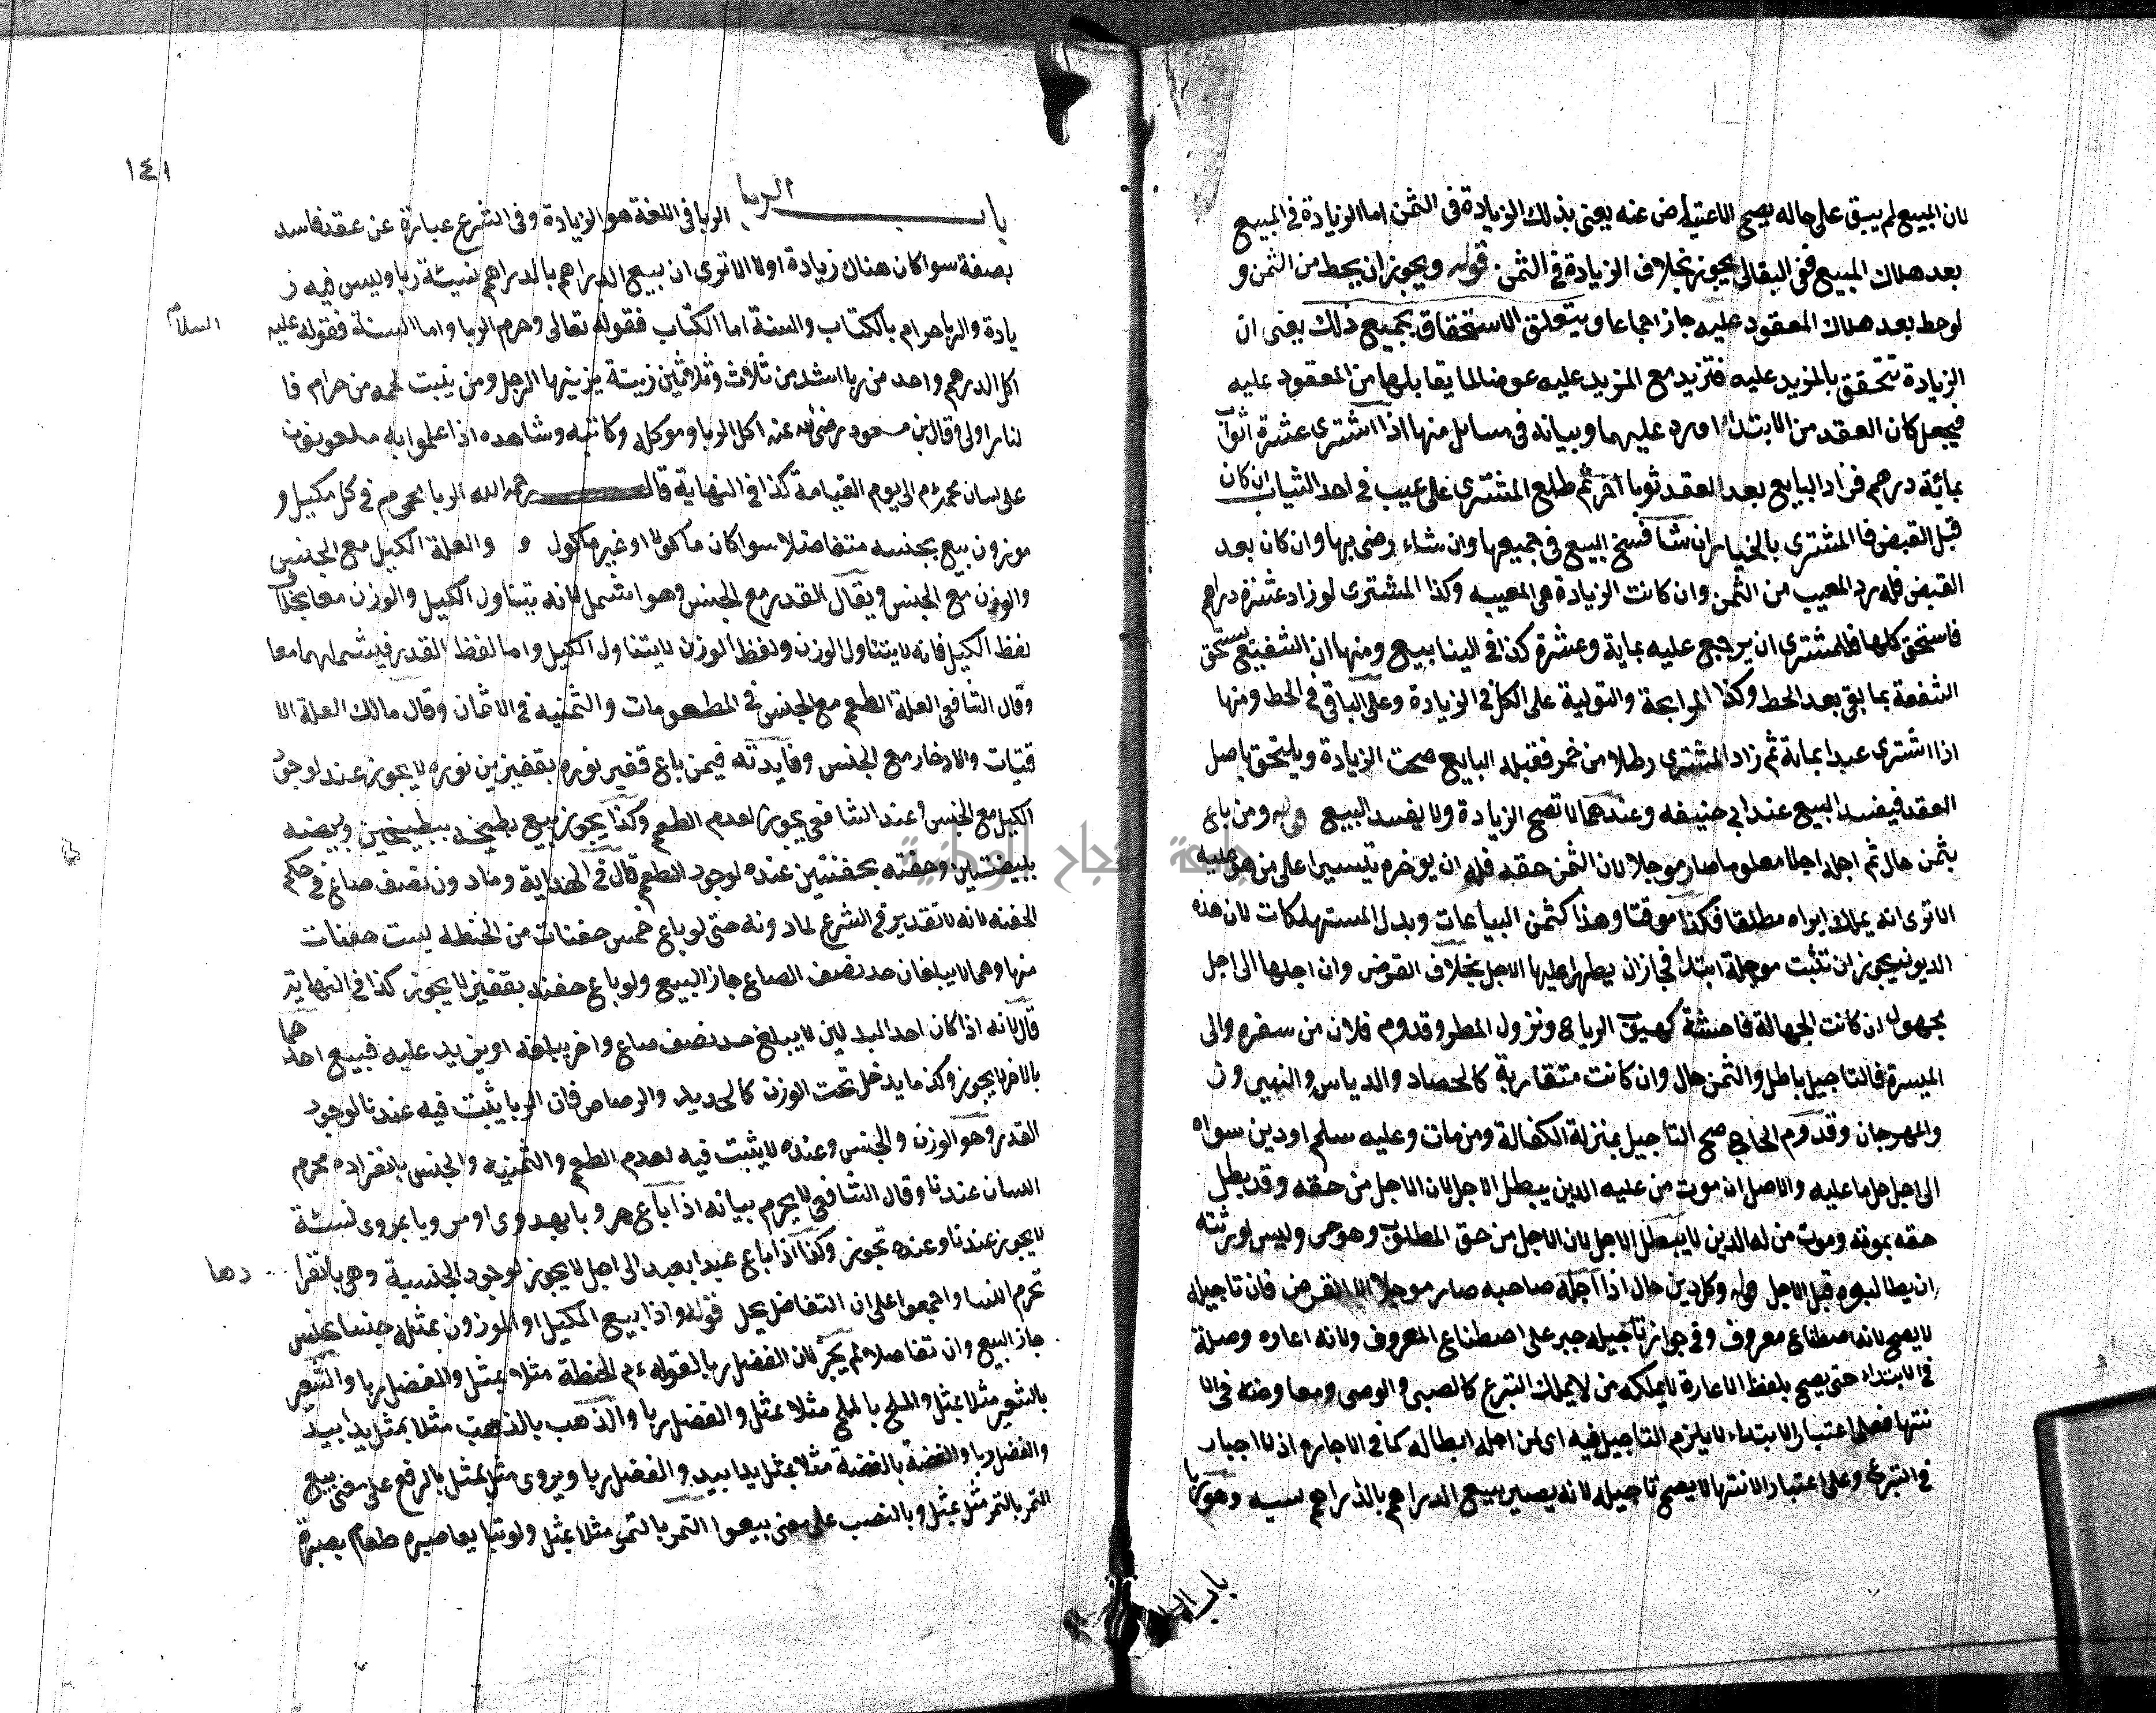 لان المبيع لم يبق على حاله يصح الاعتياض عنه يعنى بذلك الزيادة فى الثمن اما الزيادة فى المبيع
بعد هلاك المبيع ففى البقالى يجوز بخلاف الزيادة فى الثمن قوله ويجوز ان يحط من الثمن و
لو حط بعد هلاك المعقود عليه جاز اجماعا ويتعلق الاستحقاق بجميع ذلك يعنى ان
الزيادة تتحقق بالمزيد عليه فتزيد مع المزيد عليه عوضا لما يقابلها من المعقود عليه
فيجعل كان العقد من الابتداء اورد عليهما وبيانه فى مسايل منها اذا اشترى عشرة اثواب
بمائة درهم فزاد البايع بعد العقد ثوبا اخر ثم طلع المشترى على عيب فى احد الثياب ان كان
قبل القبض فالمشترى بالخيار ان شا فسخ البيع فى جميعها وان شاء رضى بها وان كان بعد
القبض فله رد المعيب من الثمن وان كانت الزيادة هى المعيبه وكذا المشترى لو زاد عشرة دراهم
فاستحق كلها فللمشترى ان يرجع عليه بماية وعشرة كذا فى الينابيع ومنها ان الشفيع يستحق
الشفعة بما بقى بعد الحط وكذا المرابحة والتولية على الكل فى الزيادة وعلى الباقى فى الحط ومنها
اذا اشترى عبدا بماىة ثم زاد المشترى رطلا من خمر فقبله البايع صحت الزيادة ويلتحق باصل
العقد فيفسد البيع عند ابى حنيفه وعندهما لا تصح الزيادة ولا يفسد البيع قوله ومن باع
بثمن حال ثم اجله اجلا معلوما صار موجلا لان الثمن حقه فله ان يوخره تيسيرا على من هو عليه
الا ترى انه يملك ابراه مطلقا فكذا موقتا وهذا كثمن البياعات وبدل المستهلكات لان هذه
الديون يجوز ان تثبت موجلة ابتدا فجاز ان يطرا عليها الاجل بخلاف القرض وان اجلها الى اجل
مجهول ان كانت الجهالة فاحشة كهبوب الرياح ونزول المطر وقدوم فلان من سفره والى
الميسرة فالتاجيل باطل والثمن حال وان كانت متقاربة كالحصاد والدياس والنهى وز
والمهرجان وقدوم الحاج صح التاجيل بمنزلة الكفالة ومن مات وعليه سلم او دين سواه
الى اجل حل ما عليه والاصل ان موت من عليه الدين يبطل الاجل لان الاجل من حقه وقد بطل
حقه بموته وموت من له الدين لا يبطل الاجل لان الاجل من حق المطلوب وهو حى وليس لورثته
ان يطالبوه قبل الاجل قوله وكل دين حال اذا اجله صاحبه صار موجلا الا القرض فان تاجيله
لا يصح لانه اصطناع معروف وفى جواز تاجيله جبر على اصطناع المعروف ولانه اعاره وصلة
فى الابتداء حتى يصح بلفظ الاعارة لا يملكه من لا يملك التبرع كالصبى والوصى ومعاوضة فى الا
نتها فعلى اعتبار الابتداء لا يلزم التاجيل فيه اى لمن اجله ابطاله كما فى الاجاره اذ لا اجبار
فى التبرع وعلى اعتبار الانتها لا يصح تاجيله لانه يصير بيع الدراهم بالدراهم نسيه وهو ربا
باب الربا
١٤١
باب الربا الربا فى اللغة هو الزيادة وفى الشرع عبارة عن عقد فاسد
بصفة سوا كان هناك زيادة اولا الا ترى ان بيع الدراهم بالدراهم نسيئة ربا وليس فيه ز
يادة والربا حرام بالكتاب والسنة اما الكتاب فقوله تعالى وحرم الربا واما السنة فقوله عليه السلام
اكل الدرهم واحد من ربا اشد من ثلاث وثلاثين زنية يزنيها الرجل ومن ينبت لحمه من حرام فا
لنار اولى وقال بن مسعود رضى الله عنه اكل الربا وموكله وكاتبه وشاهده اذا علموا به ملعونون
على لسان محمد م الى يوم القيامة كذا فى النهاية قال رحمه الله الربا محرم فى كل مكيل و
موزون بيع بجنسه متفاضلا سوا كان ماكولا او غير ماكول و والعلة الكيل مع الجنس
والوزن مع الجنس ويقال القدر مع الجنس وهو اشمل لانه يتناول الكيل والوزن معا بخلاف
لفظ الكيل فانه لا يتناول الوزن ولفظ الوزن لا يتناول الكيل واما لفظ القدر فيشملهما معا
وقال الشافعى العلة الطعم مع الجنس فى المطعومات والثمنيه فى الاثمان وقال مالك العلة الا
قتيات والادخار مع الجنس وفايدته فيمن باع قفيز نوره بقفيزين نوره لا يجوز عندنا لوجود
الكيل مع الجنس وعند الشافعى يجوز لعدم الطعم وكذا يجوز بيع بطيخه ببطيختين وبيضه
ببيضتين وحفنه بحفنتين عنده لوجود الطعم قال فى الهداية وما دون نصف صاع فى حكم
الحفنه لانه لا تقدير فى الشرع لما دونه حتى لو باع خمس حفنات من الحنطه بست حفنات
منها وهما لا يبلغان حد نصف الصاع جاز البيع ولو باع حفنه بقفيز لا يجوز كذا فى النهاية
قال لانه اذا كان احد البدلين لا يبلغ حد نصف صاع واخر يبلغه او يزيد عليه فبيع احدهما
بالاخر لا يجوز وكذ ما يدخل تحت الوزن كالحديد والرصاص فان الربا يثبت فيه عندنا لوجود
القدر وهو الوزن والجنس وعنده لا يثبت فيه لعدم الطعم والثمنيه والجنس بانفراده محرم
النسان عندنا وقال الشافعى لا يحرم بيانه اذا باع هرويا بهروى او مرويا بمروى نسئة
لا يجوز عندنا وعنده تجوز وكذا اذا باع عبدا بعبد الى اجل لا يجوز لوجود الجنسية وهى بانفرا دها
تحرم النسا واجمعوا على ان التفاضل يحل قوله واذا بيع المكيل او الموزون بمثله جنسا بجنس
جاز البيع وان تفاضلا لم يجز لان الفضل ربا لقوله ءم الحنطة مثلا بمثل والفضل ربا والشعير
بالشعير مثلا بمثل والملح بالملح مثلا بمثل والفضل ربا والذهب بالذهب مثلا بمثل يدا بيد
والفضل ربا والفضة بالفضة مثلا بمثل يدا بيد والفضل ربا ويروى مثل بمثل بالرفع على معنى بيع
التمر بالتمر مثل بمثل وبالنصب على معنى بيعوا التمر بالتمر مثلا بمثل ولو تبايعا صبره طعام بصبرة